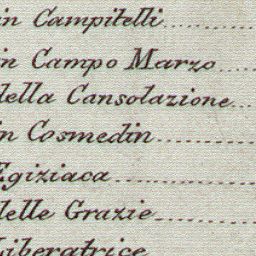 in Campitelli
in Campo Marzo
della Cansolazione
in Cosmedin
Egiziaca
delle Grazie
Liberatrice